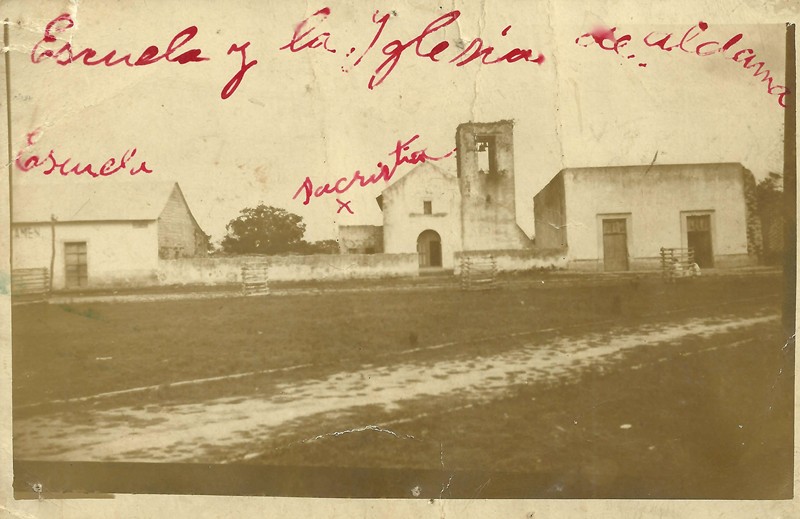 Escuela y la Iglesia de Aldama
Escuela
sacristia
x